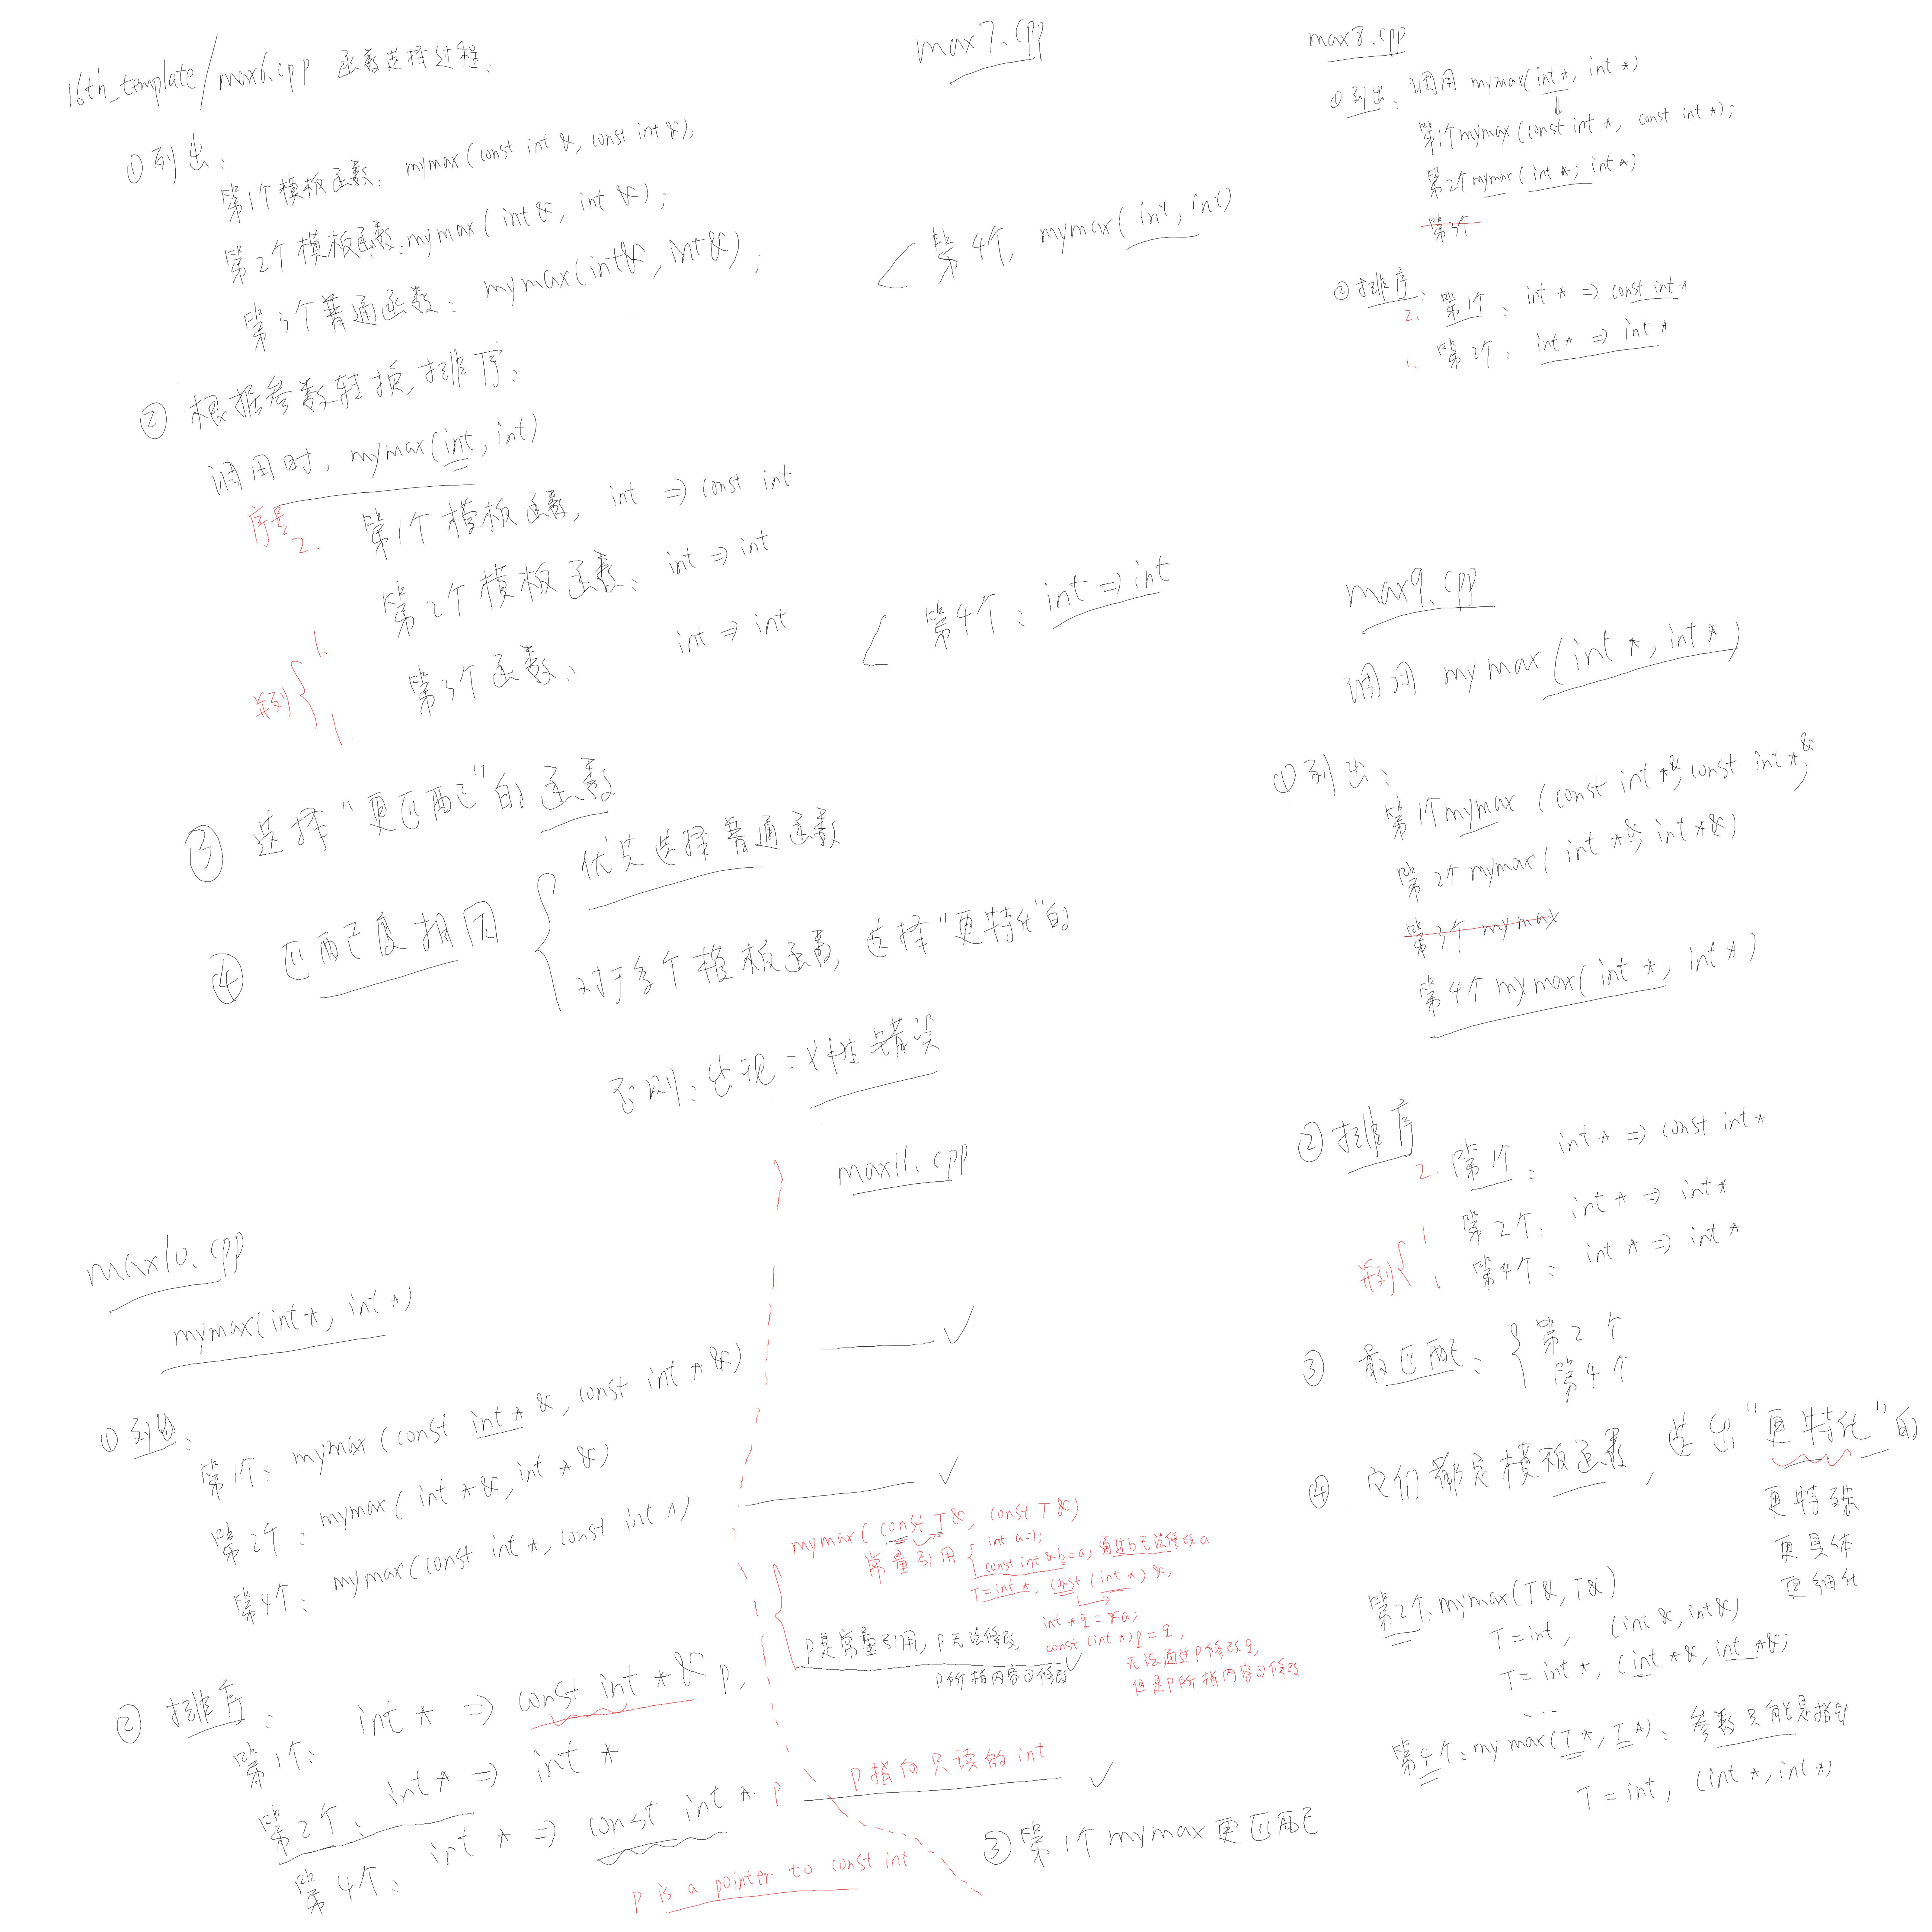 16th_template/max6.cpp 函数选择过程:
① 列出:
第1个模板函数: mymax(const int &, const int &);
第2个模板函数: mymax(int&, int &);
第3个普通函数: mymax(int&, int&);
② 根据参数转换,排序:
调用时, mymax(int, int)
序号
2. 第1个模板函数, int ⇒ const int
1. 第2个模板函数: int ⇒ int
并列
1 第3个函数: int ⇒ int
③ 选择“更匹配”的函数
④ 匹配度相同
优先选择普通函数
对于多个模板函数, 选择“更特化”的
否则: 出现二义性错误
max7.cpp
< 第4个, mymax(int, int)
< 第4个: int ⇒ int
max8.cpp
① 列出: 调用 mymax(int *, int *)
⇓
第1个mymax(const int *, const int *);
第2个mymax(int *, int *)
第3个
② 排序:
2. 第1个: int * ⇒ const int *
1. 第2个: int * ⇒ int *
max9.cpp
调用 mymax(int *, int *)
① 列出:
第1个mymax (const int *&, const int *&;
第2个mymax( int *&, int *&)
第3个 mymax
第4个 mymax( int *, int *)
② 排序
2. 第1个: int * ⇒ const int *
1 第2个: int * ⇒ int *
并列
1. 第4个: int * ⇒ int *
③ 最匹配: 第2个
第4个
④ 它们都是模板函数, 选出“更特化”的
更特殊
更具体
更细化
第2个: mymax(T&, T&)
T=int, (int &, int&)
T=int *, (int *&, int *&)
...
第4个: mymax(T*, T*): 参数只能是指针
T=int, (int *, int *)
max10.cpp
mymax(int *, int *)
① 列出:
第1个: mymax (const int * &, const int * &)
第2个: mymax( int *&, int *&)
第4个: mymax(const int *, const int *)
② 排序:
第1个: int * ⇒ const int *& p,
第2个: int * ⇒ int *
第4个: int * ⇒ const int * p
p is a pointer to const int
max11.cpp
✓
✓
mymax( const T&, const T&)
常量引用 int a=1;
const int &b=a; 通过b无法修改a
T=int *, const (int *) &,
int * q = &a;
const (int *) p = q,
无法通过p修改q,
但是p所指内容可修改
p是常量引用, p无法修改
p所指内容可修改 ✓
p指向只读的int ✓
③ 第1个mymax更匹配